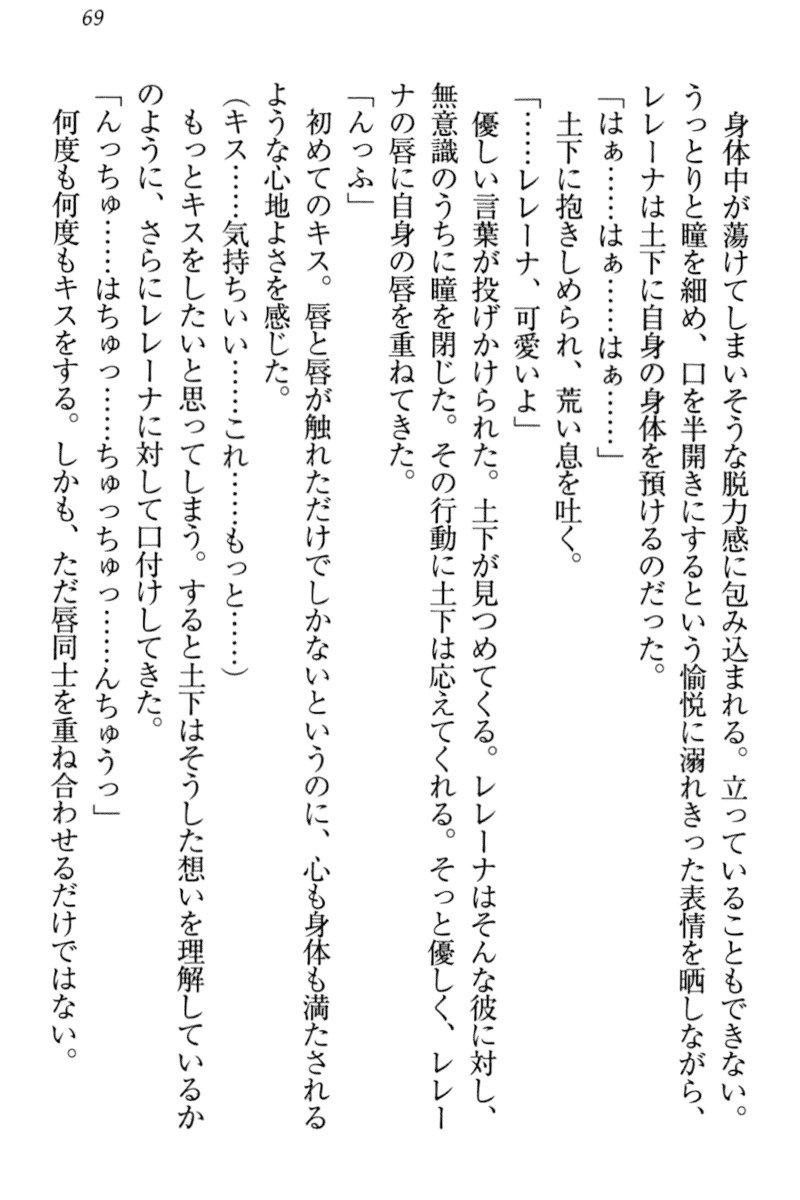 69
身体中が蕩けてしまいそうな脱力感に包み込まれる。立っていることもできない。
うっとりと瞳を細め、口を半開きにするという愉悦に溺れきった表情を晒しながら、
レレーナは土下に自身の身体を預けるのだった。
「はぁ……はぁ……はぁ……」
土下に抱きしめられ、荒い息を吐く。
「……レレーナ、可愛いよ」
優しい言葉が投げかけられた。土下が見つめてくる。レレーナはそんな彼に対し、
無意識のうちに瞳を閉じた。その行動に土下は応えてくれる。そっと優しく、レレー
ナの唇に自身の唇を重ねてきた。
「んっふ」
初めてのキス。唇と唇が触れただけでしかないというのに、心も身体も満たされる
ような心地よさを感じた。
（キス……気持ちいい……これ……もっと……）
もっとキスをしたいと思ってしまう。すると土下はそうした想いを理解しているか
のように、さらにレレーナに対して口付けしてきた。
「んっちゅ……はちゅっ……ちゅっちゅっ……んちゅうっ」
何度も何度もキスをする。しかも、ただ唇同士を重ね合わせるだけではない。